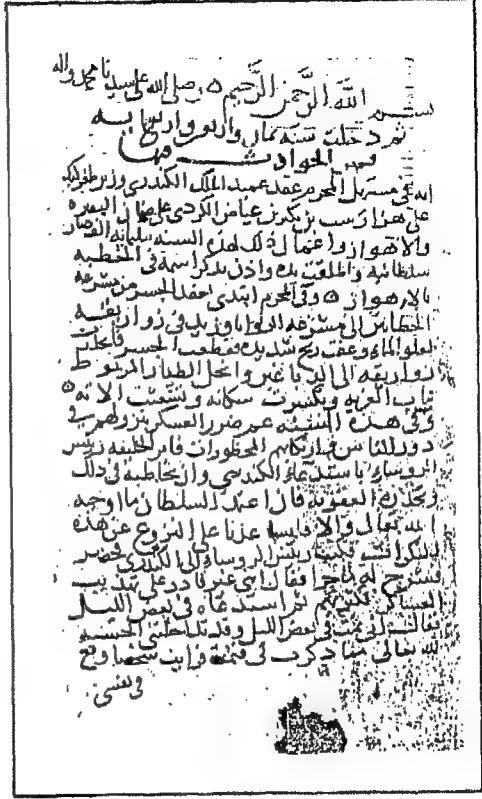 بسم الله الرحمن الرحيم وصلى الله على سيدنا محمد واله
ثم دخلت سنه ثمان واربعين واربعمائه
فمن الحوادث فيها
انه في مستهل المحرم عقد عميد الملك الكندري وزير طغرلبك
على هزارسب بن بنكير بن عياض الكردي على ضمان البصره
والاهواز واعمال ذلك لهذه السنه بثلثمائه الف
سلطانيه واطلقت يده واذن بذكر اسمه في الخطبه
بالاهواز وفي المحرم ابتدى بعقد الجسر من مشرعه
الحطابين الى مشرعه الروايا وزيد في زواريقه
لعلو الماء وعقب ريح شديده فقطعت الجسر
زواريقه الى الدباغين وانحل الطيار المربوط
بباب الغربه وتكسرت سكانه وتشعثت الاته
وفي هذه السنه عم ضرر العسكر
دور الناس وارتكابهم المحظورات فامر الخليفه رئيس
الروساء باستدعاء الكندري وان يخاطبه في ذلك
ويحذره العقوبه فان اعتمد السلطان ما اوجبه
الله تعالى والا فليساعدنا على النزوح عن هذه
المنكرات فكتب رئيس الروساء الى الكندري فحضر
فشرح له ما جرا فقال اني غير قادر على تهذيب
العساكر لكثرتهم ثم استدعاه في بعض الليل
فقال اني نمت في بعض الليل وقد تداخلني الخشيه
لله تعالى مما ذكرت في فرايت شخصا وقع
في نفسي